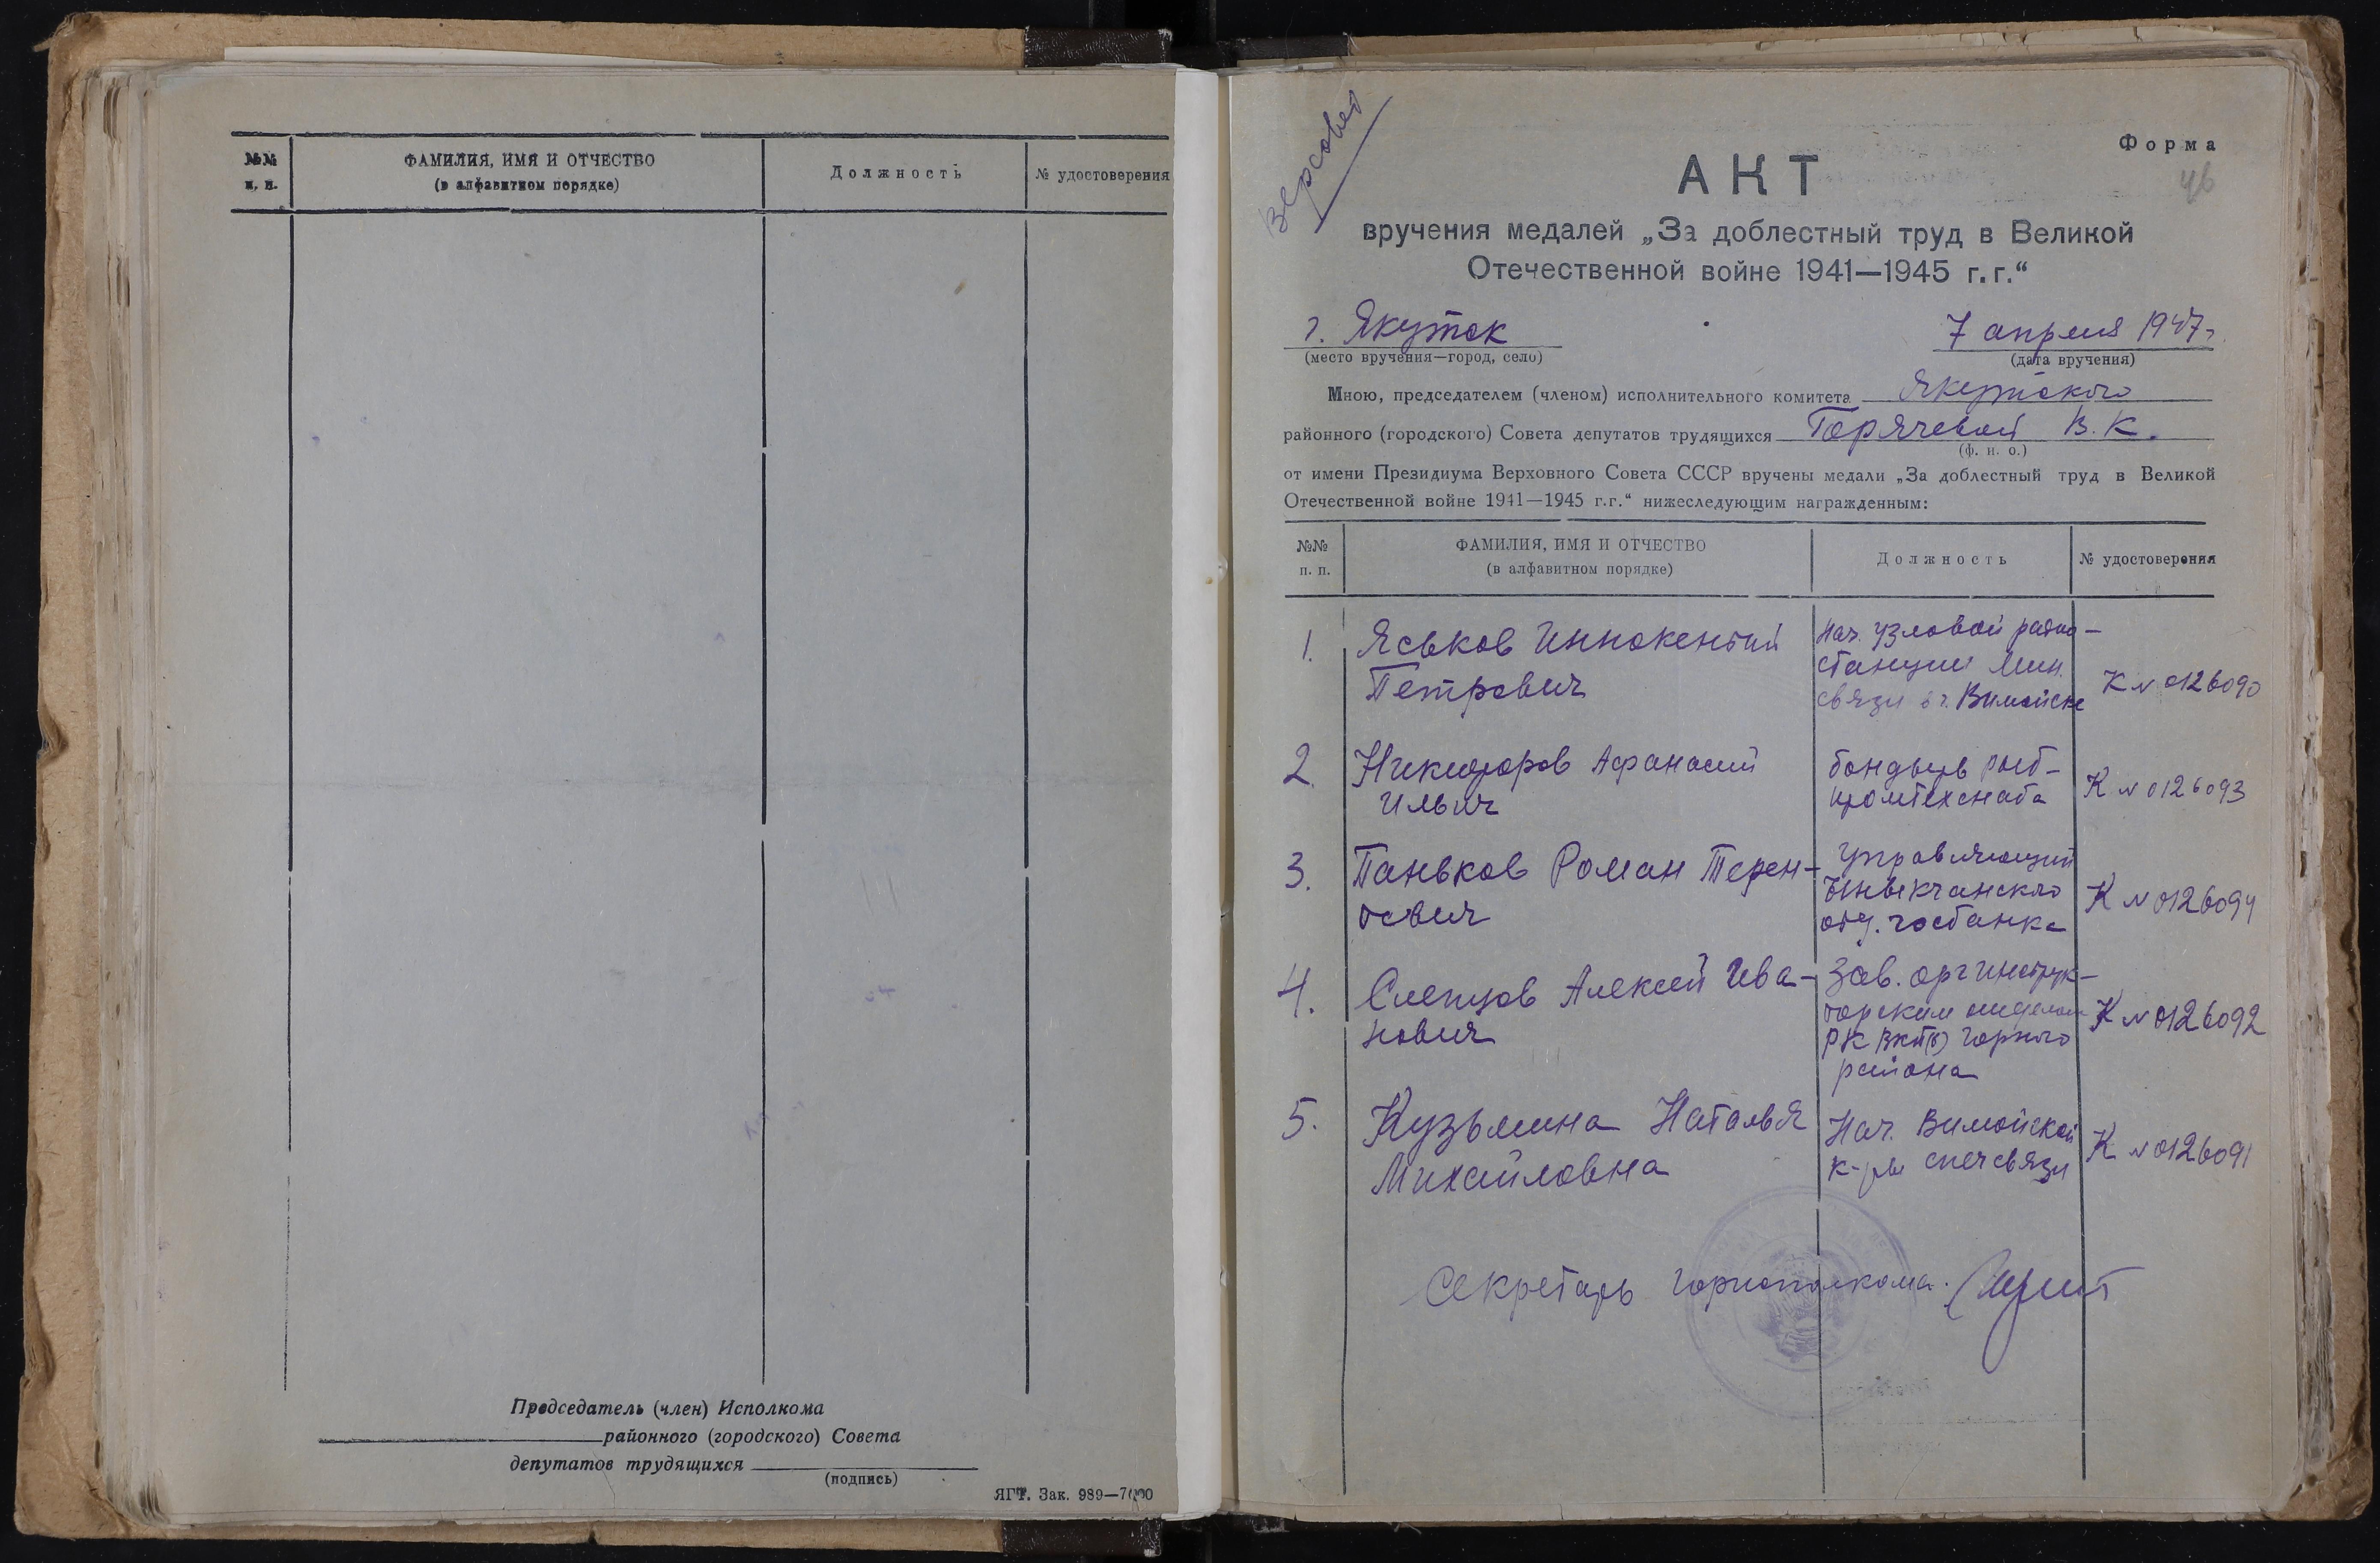 №№
п. п.
ФАМИЛИЯ, ИМЯ И ОТЧЕСТВО
(в алфавитном порядке)
Должность
№ удостоверения
Председатель (член) Исполкома
районного (городского) Совета
депутатов трудящихся
(подпись)
ЯГТ. Зак. 989—7000
Верховет
Форма
46
АКТ
вручения медалей „За доблестный труд в Великой
Отечественной войне 1941—1945 г.г.“
г. Якутск
7 апреля 1947 г.
(место вручения—город, село)
(дата вручения)
Мною, председателем (членом) исполнительного комитета Якутского
районного (городского) Совета депутатов трудящихся Горячевой В. К.
(ф. и. о.)
от имени Президиума Верховного Совета СССР вручены медали „За доблестный труд в Великой
Отечественной войне 1941—1945 г.г.“ нижеследующим награжденным:
№№
п. п.
ФАМИЛИЯ, ИМЯ И ОТЧЕСТВО
(в алфавитном порядке)
Должность
№ удостоверения
1. Яськов Иннокентий
Петрович
Нач. узловой радио-
станции Мин.
связи в г. Вилюйске
К № 0126090
2. Никифоров Афанасий
Ильич
бондарь рыб-
промтехснаба
К № 0126093
3. Паньков Роман Терен-
тьевич
Управляющий
Ыныкчанского
отд. госбанка
К № 0126094
4. Слепцов Алексей Ива-
нович
Зав. оргинструк-
торским отделом
РК ВКП(б) Горного
района
К № 0126092
5. Кузьмина Наталья
Михайловна
Нач. Вилюйской
к-ры спецсвязи
К № 0126091
Секретарь горисполкома